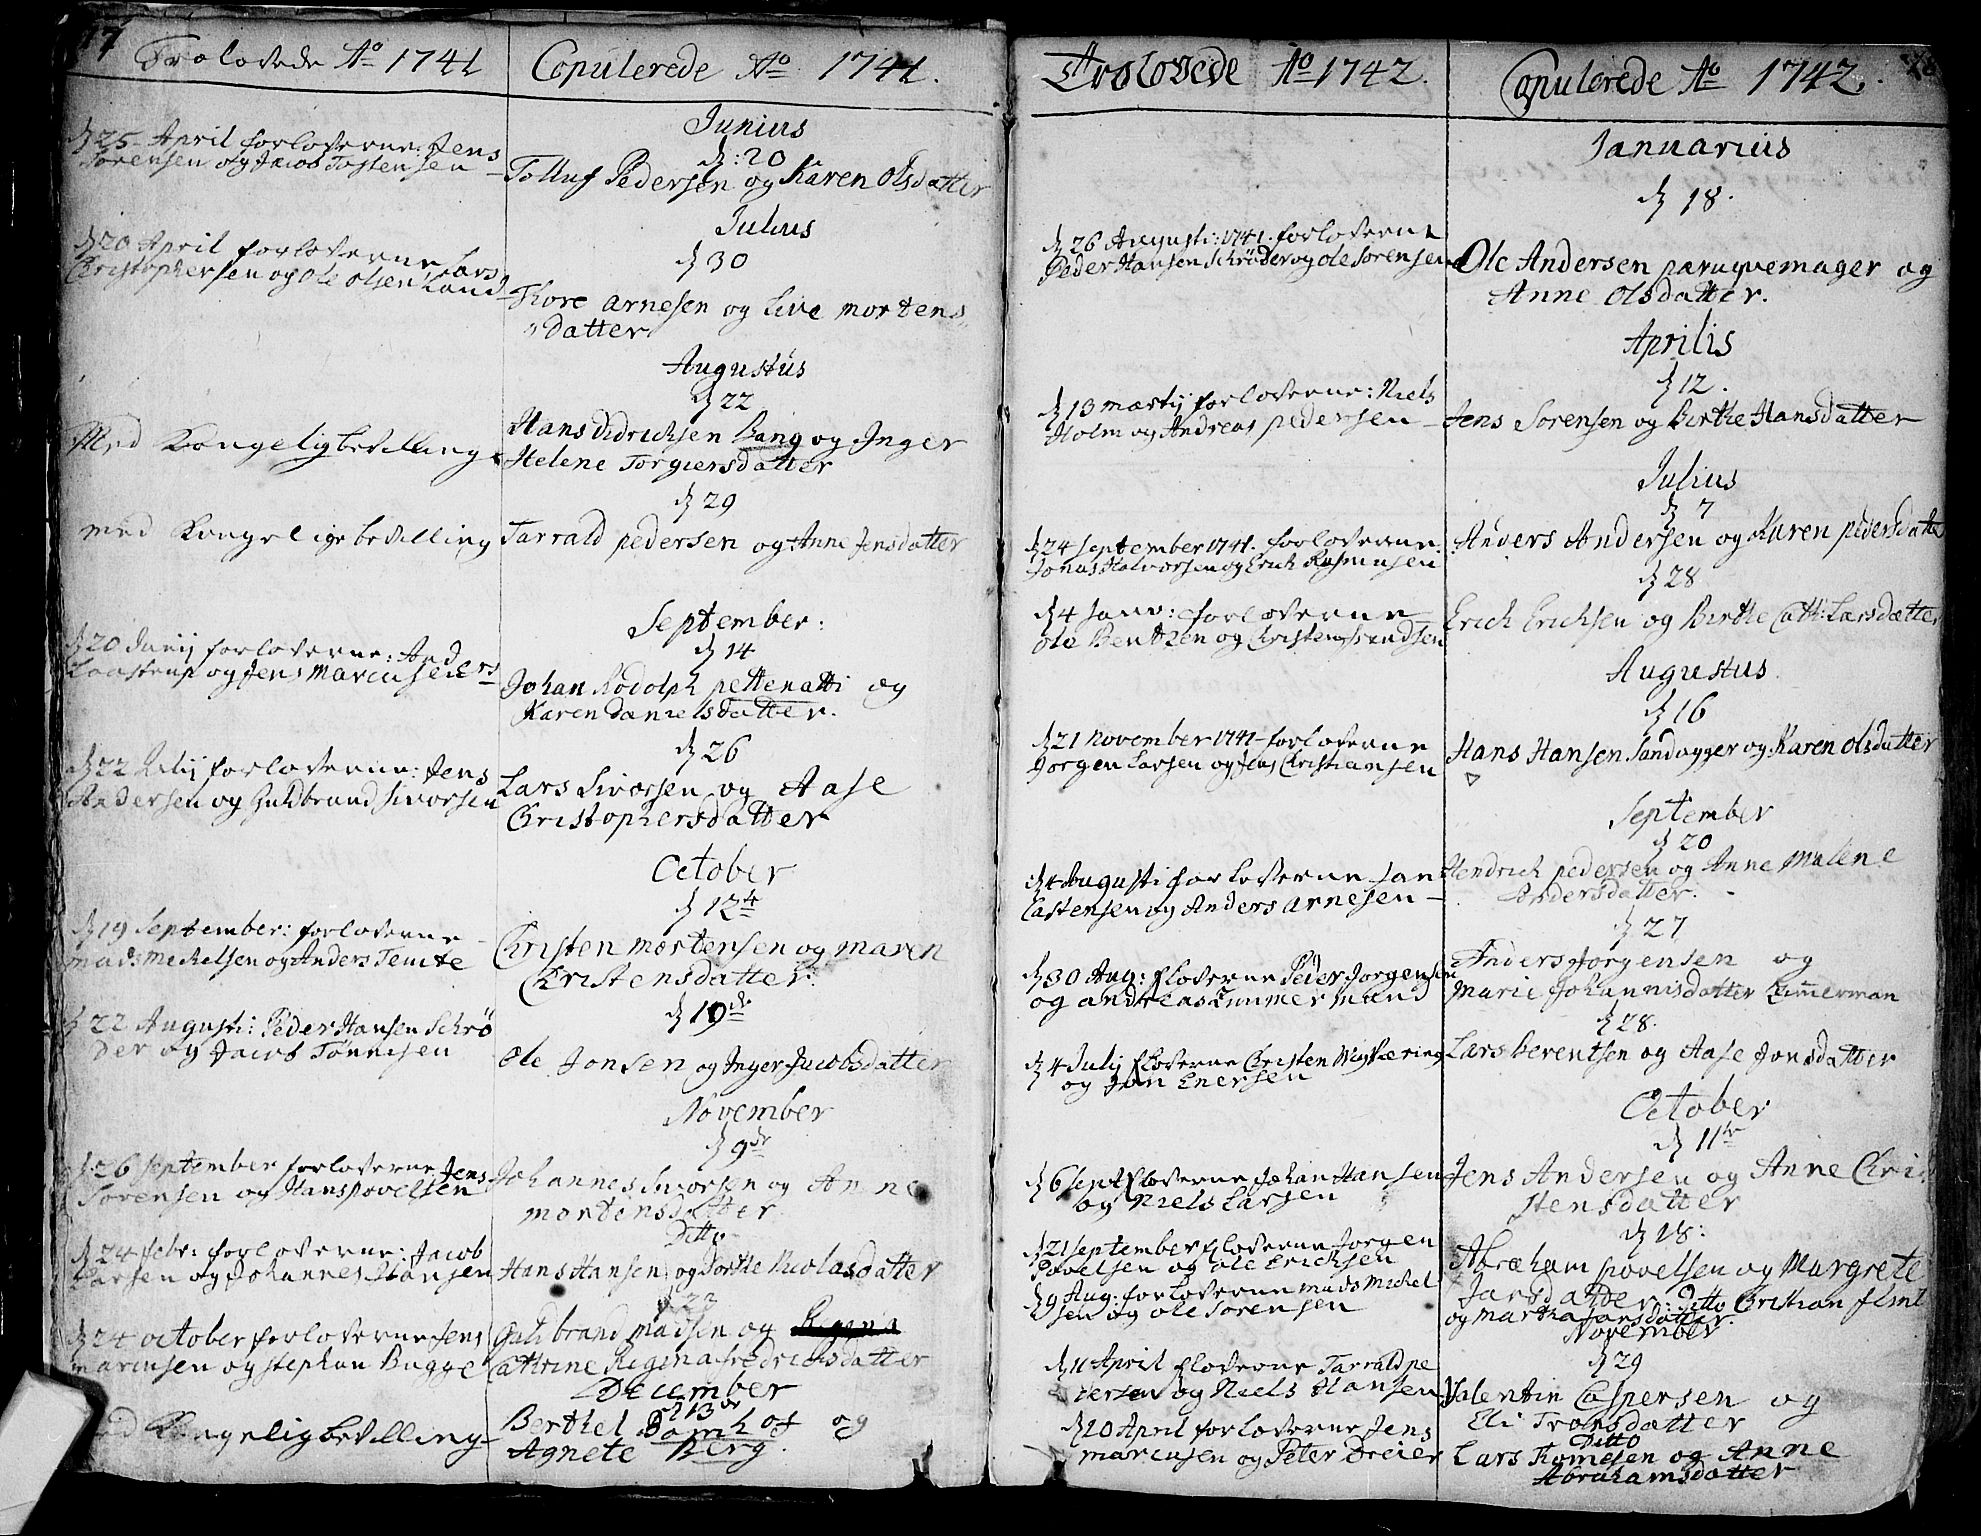 77
Trolovede Ao 1741
d 25 April forloverne: Jens
Sørensen og Jacob Tostensen
d 20 April forloverne Lars
Christophersen og Ole Olsen Lund
Med Kongelig bevilling
med Kongelige bevilling
d 20 Junij forloverne: Anders
Laastrup og Jens Marensen
d 22 Julij forloverne: Jens
Andersen og Guldbrand Sivorsen
d 19 September: forloverne
mads Mechelsen og Anders Temte
d 22 Augusti: Peder Hansen Schrø
der og Jacob Tønnesen
d 26 September forloverne Jens
Sørensen og Hans Povelsen
d 24 febr: forloverne: Jacob
Larsen og Johannes Hansen
d 24 October forloverne Jens
marensen og Stephan Bugge
med Kongelig bevilling
Copulerede Ao 1741.
Junius
d: 20
Tolluf Pedersen og Karen Olsdatter
Julius
d 30
Thore Arnesen og Live Mortens
datter
Augustus
d 22
Hans Didrichsen Bang og Inger
Helene Torgiersdatter
d 29
Tarrald pedersen og Anne Jensdatter
September:
d 14
Johan Rodolph pettenatti og
Karen Danielsdatter.
d 26
Lars Sivorsen og Aase
Christophersdatter
October
d 12te
Christen Mortensen og Maren
Christensdatter.
d 19de
Ole Jonsen og Inger Jacobsdatter
November
d 9de
Johannes Sivorsen og Anne
mortensdatter
Ditto
Hans Hansen og Dorthe Nicolasdatter
d 22
Guldbrand Madsen og Regina
Cathrine Regina fredrichsdatter
December
d 13de
Berthel Bomhof og
Agnete Berg.
Trolovede Ao 1742.
d 26 Augusti: 1741. forloverne
Peder Hansen Schrøder og Ole Sorensen
d 13 martij forloverne: Niels
Holm og Andreas pedersen
d 24 September 1741. forloverne:
Jonas Halvorsen og Erich Rasmusen
d 4 Janv: forloverne
Ole Bentzen og Christen Svendsen
d 21 November 1741 forloverne
Jorgen Larsen og Jens Christiansen
d 4 Augusti forloverne Jan
Castensen og Anders Arnesen
d 30 Aug: floverne Peder Jorgensen
og andreas Zimmermand
d 4 Julij floverne Christen
og Jan Enersen
d 6 Sept floverne Johan Hansen
og Niels Larsen
d 21 September floverne Jorgen
Povelsen og Ole Ericksen
d 9 Aug: forloverne mads Michel
sen og Ole Sorensen
d 11 April floverne Tarrald pe
dersen og Niels Hansen
d 20 April forloverne Jens
marensen og Peter Dreier
78
Copulerede Ao 1742.
Januarius
d 18.
Ole Andersen paruqvemager og
Anne Olsdatter.
Aprilis
d 12.
Jens Sorensen og Birthe Hansdatter
Julius
d 7
Anders Andersen og Karen pedersdatter
d 28
Erich Erichsen og Birthe Cath: Larsdatter
Augustus
d 16
Hans Hansen Sandagger og Karen Olsdatter
September
d 20
Hendrich pedersen og Anne Malene
Andersdatter.
d 27
Anders Jorgensen og
Marie Johannisdatter Zimmerman
d 28.
Lars Berentsen og Aase Jonsdatter
October
d 11te
Jens Andersen og Anne Chri
stensdatter
d 18:
Abraham povelsen og Margrete
Jarsdatter: Ditto Christian flint
og martha Jarsdatter.
November
d 29
Valentin Caspersen og
Eli Tronsdatter
Ditto
Lars Thomesen og Anne
Abrahamsdatter